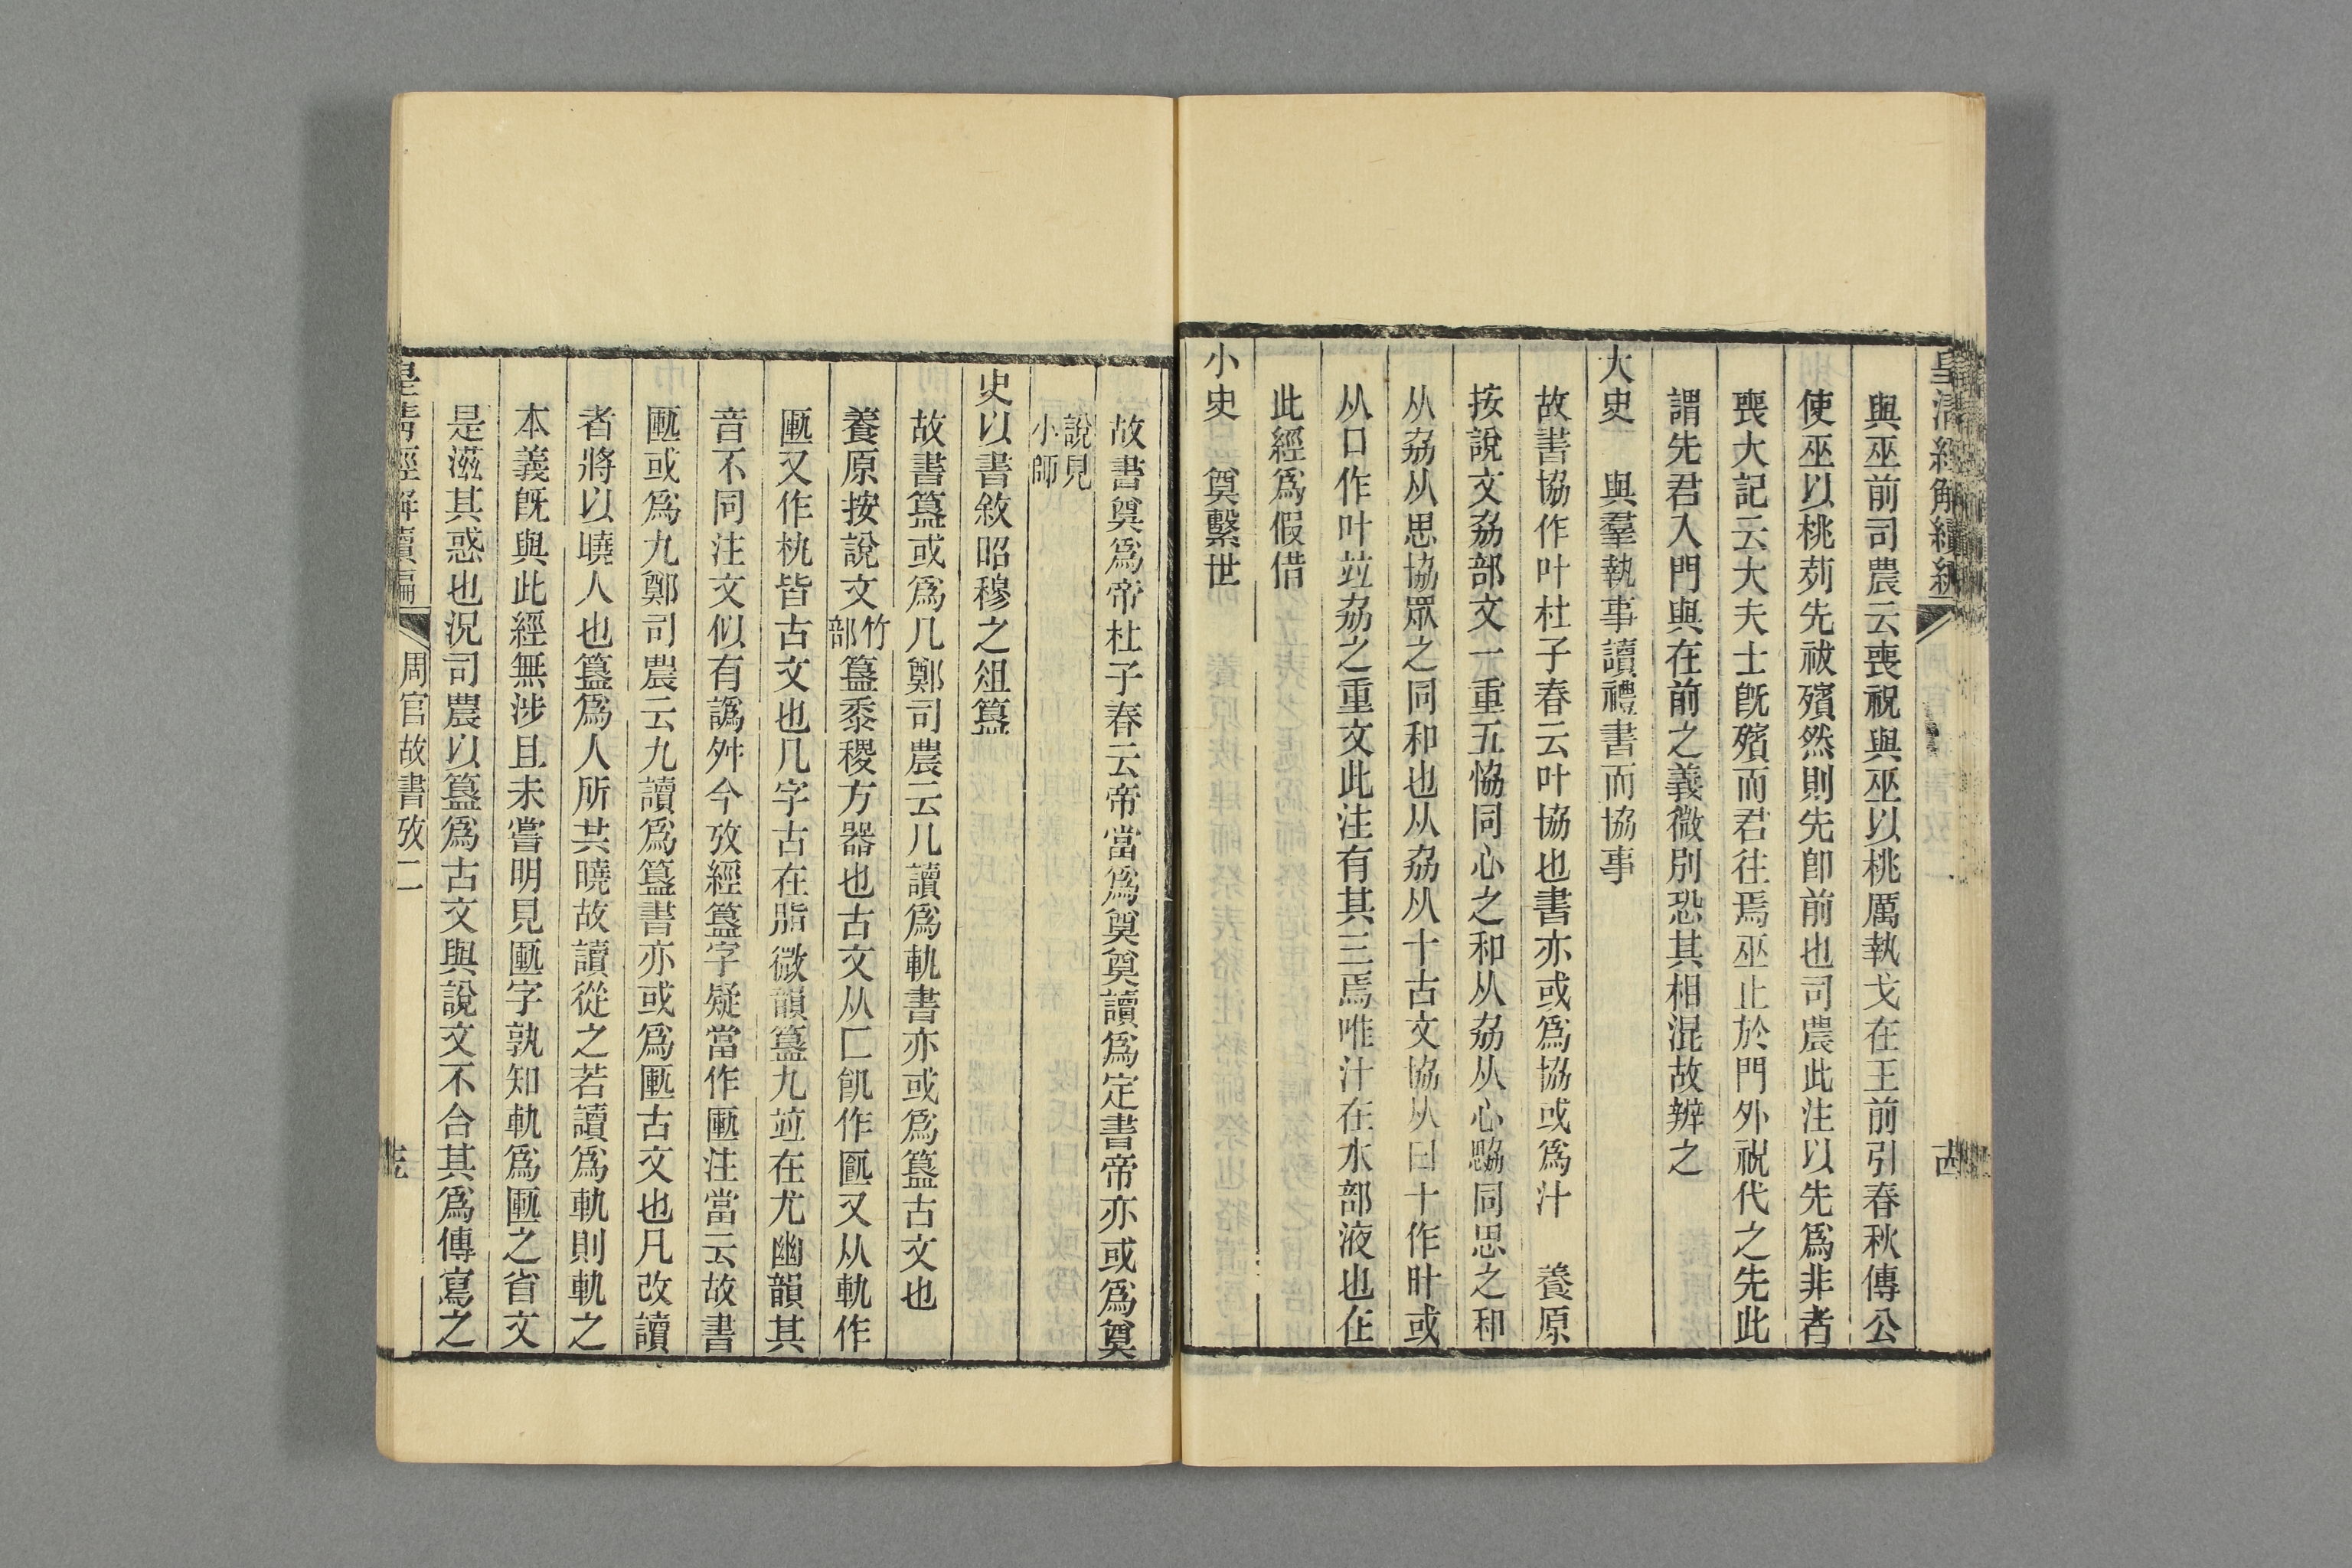 皇清經解續編
與巫前司農云喪祝與巫以桃厲執戈在王前引春秋傳公
使巫以桃茢先祓殯然則先卽前也司農此注以先爲非者
喪大記云大夫士旣殯而君往焉巫止於門外祝代之先此
謂先君入門與在前之義微別恐其相混故辨之
大史　與羣執事讀禮書而協事
故書協作叶杜子春云叶協也書亦或爲協或爲汁　養原
按說文劦部文一重五恊同心之和从劦从心勰同思之和
从劦从思協眾之同和也从劦从十古文協从曰十作㫡或
从口作叶竝劦之重文此注有其三焉唯汁在水部液也在
此經爲假借
小史　奠繫世
故書奠爲帝杜子春云帝當爲奠奠讀爲定書帝亦或爲奠
說見
小師
史以書敘昭穆之俎簋
故書簋或爲几鄭司農云几讀爲軌書亦或爲簋古文也
養原按說文竹部簋黍稷方器也古文从匚飢作匭又从軌作
匭又作朹皆古文也几字古在脂微韻簋九竝在尤幽韻其
音不同注文似有譌舛今攷經簋字疑當作匭注當云故書
匭或爲九鄭司農云九讀爲簋書亦或爲匭古文也凡改讀
者將以曉人也簋爲人所共曉故讀從之若讀爲軌則軌之
本義旣與此經無涉且未嘗明見匭字孰知軌爲匭之省文
是滋其惑也況司農以簋爲古文與說文不合其爲傳寫之
皇清經解續編
周官故書攷二